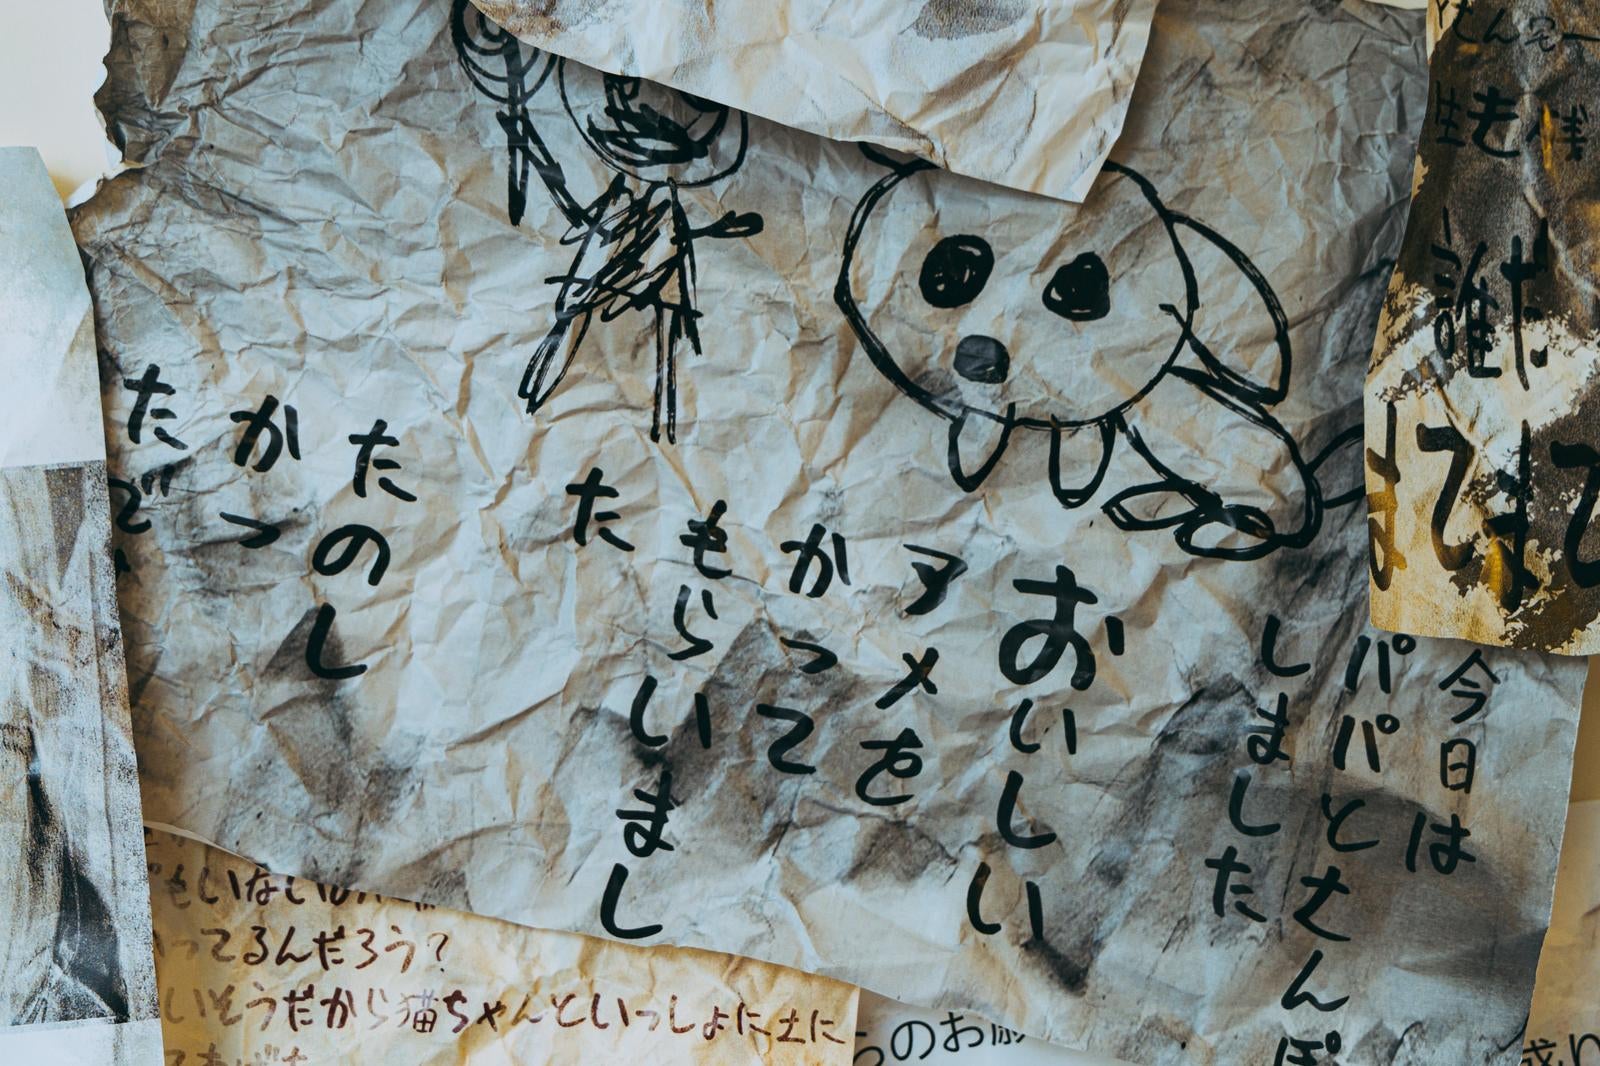 今日は
パパとさんぽ
しました
おいしい
アメを
かって
もらいまし
た
たのし
かっ
たで
誰だ
もいない
ってるんだろう?
いそうだから猫ちゃんといっしょに土に
てあげた
らのお
盛り